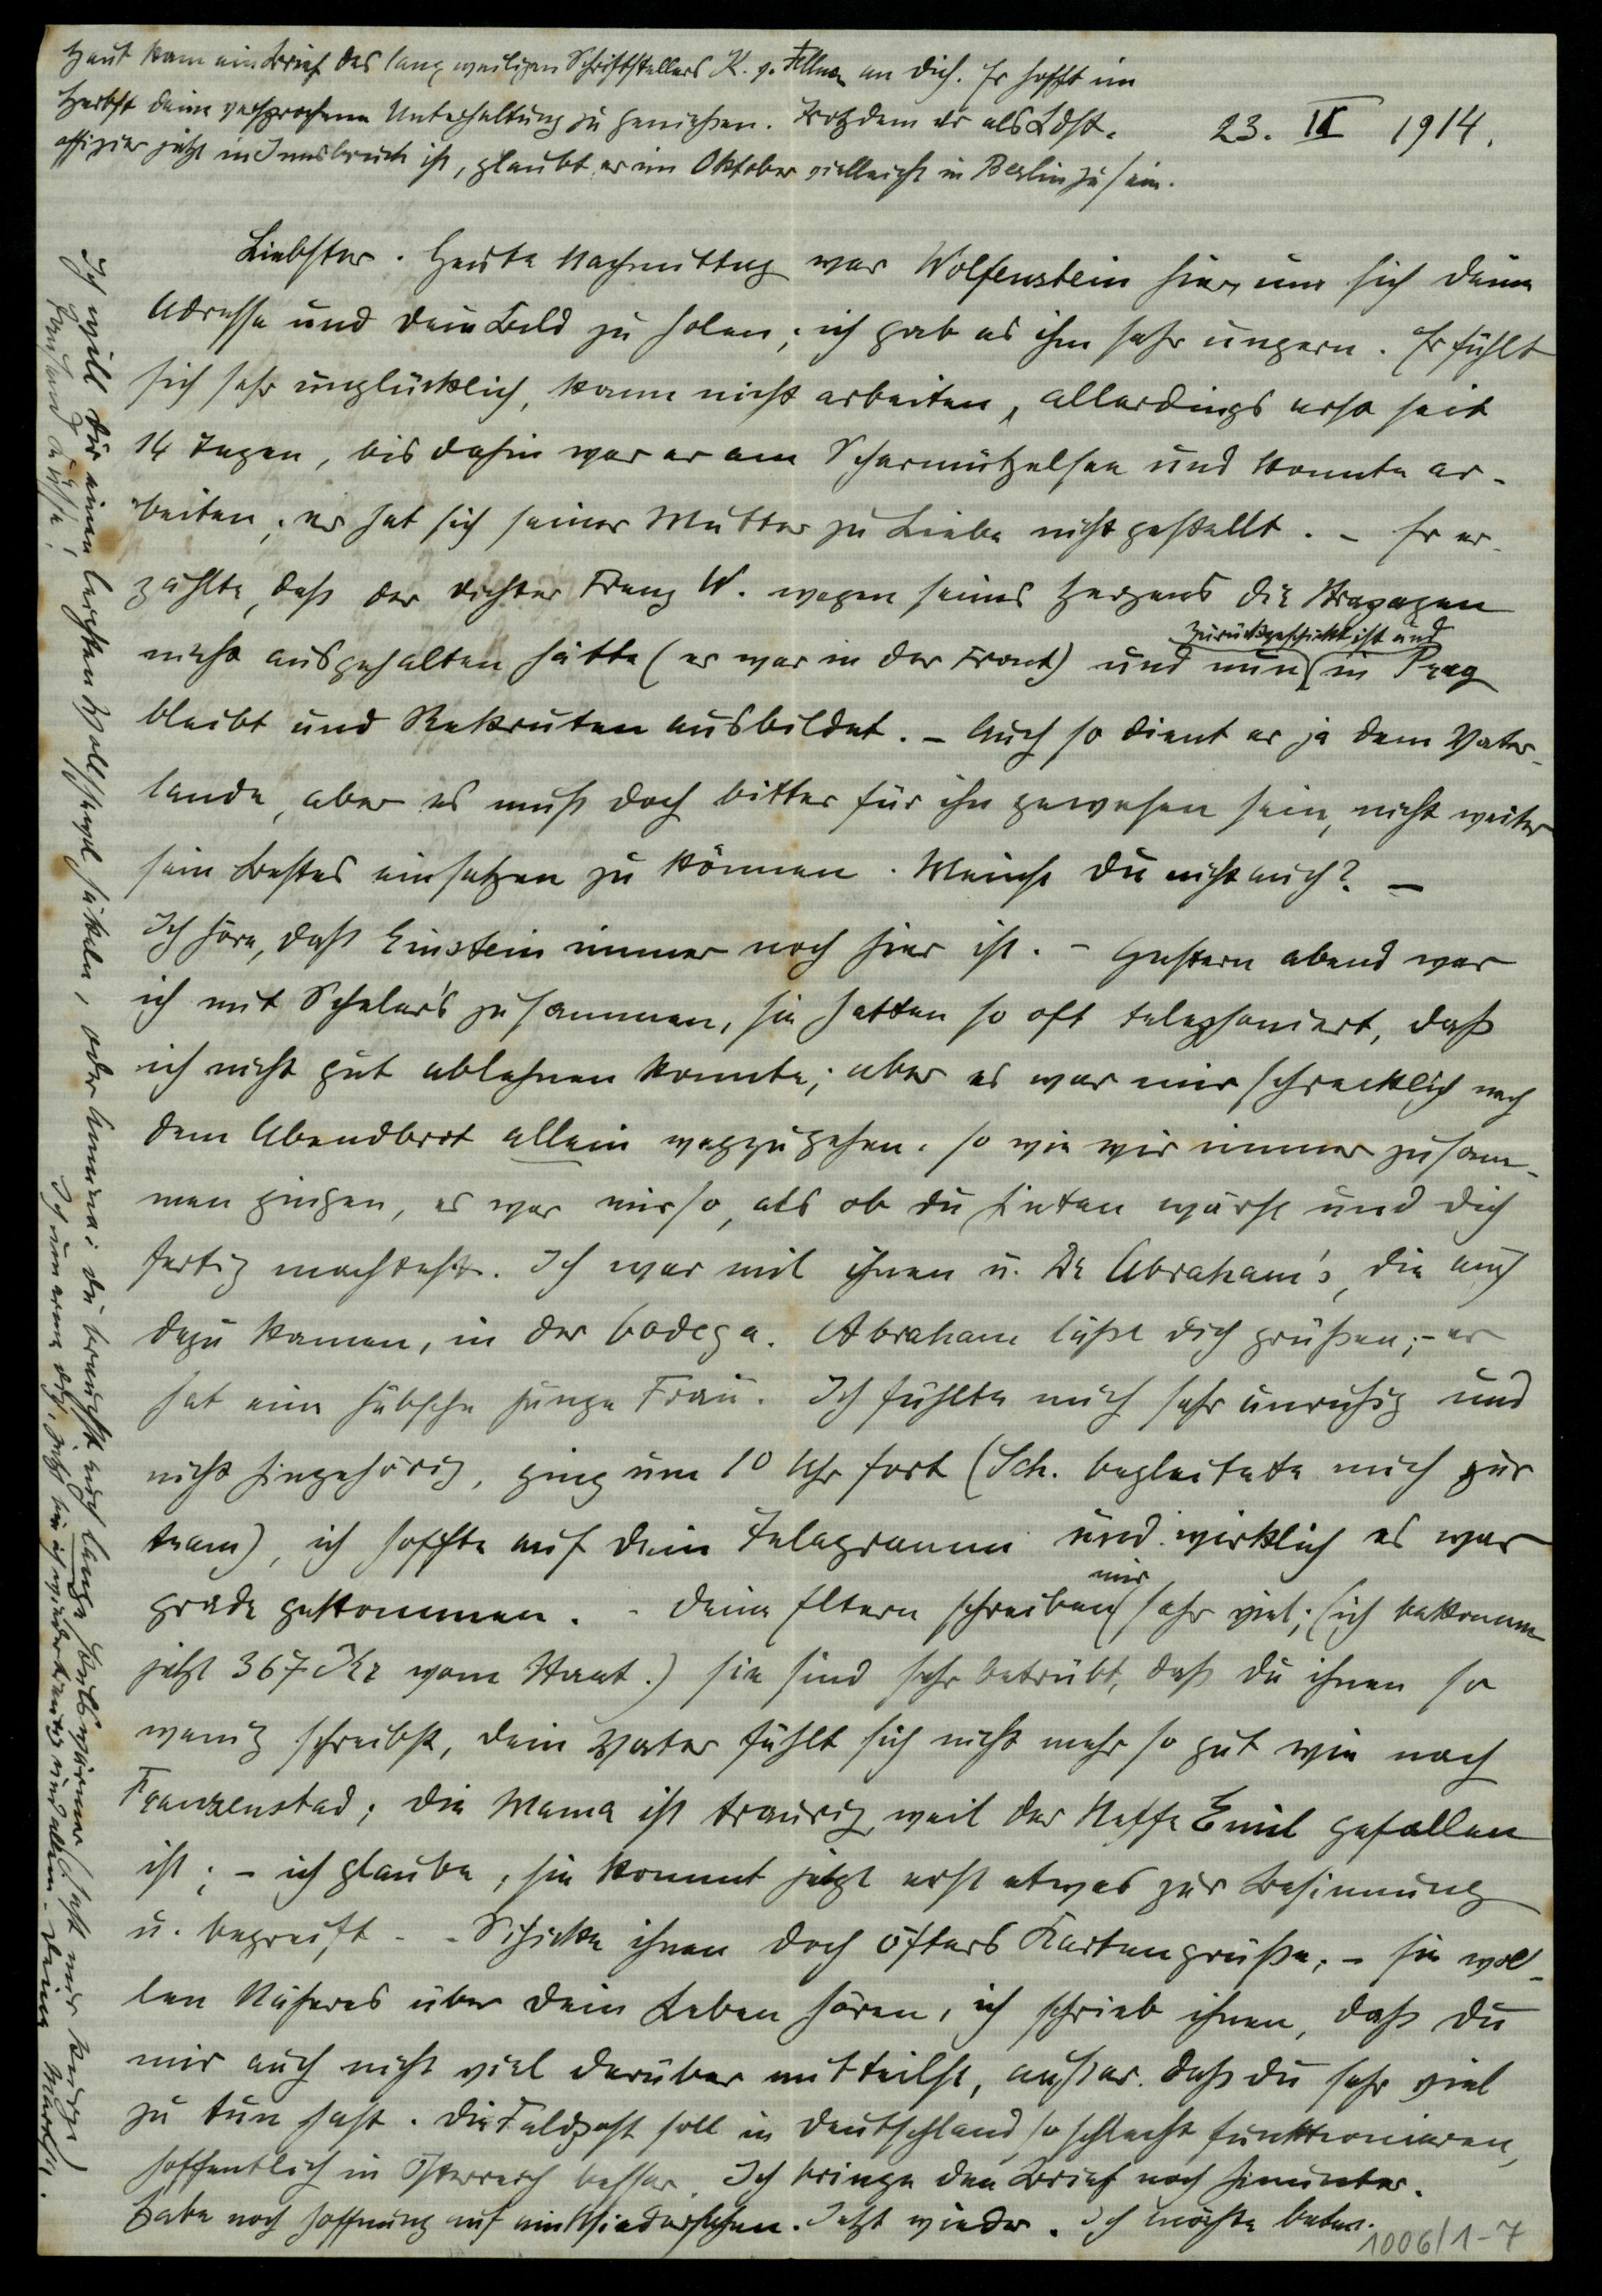 Heut kam ein Brief des langweiligen Schriftstellers K. v. Fellner an dich. Er hofft im
Herbst deine versprochene Unterhaltung zu genießen. Trotzdem er als Ldst.
offizier jetzt in Innsbruck ist, glaubt er im Oktober vielleicht in Berlin zu sein.
23. IX 1914.
Liebster. Heute Nachmittag war Wolfenstein hier, um sich deine
Adresse und dein Bild zu holen; ich gab es ihm sehr ungern. Er fühlt
sich sehr unglücklich, kann nicht arbeiten, allerdings erst seit
14 Tagen, bis dahin war er am Scharmützelsee und konnte ar-
beiten; er hat sich seiner Mutter zu Liebe nicht gestellt. – Er er-
zählte, daß der Dichter Franz W. wegen seines Herzens die Strapazen
nicht ausgehalten hätte (er war in der Front) und nun zurückgeschickt ist und in Prag
bleibt und Rekruten ausbildet. – Auch so dient er ja dem Vater-
lande, aber es muß doch bitter für ihn gewesen sein, nicht weiter
sein Bestes einsetzen zu können. Meinst du nicht auch? –
Ich höre, daß Einstein immer noch hier ist. – Gestern abend war
ich mit Scheler's zusammen, sie hatten so oft telephoniert, daß
ich nicht gut ablehnen konnte; aber es war mir schrecklich nach
dem Abendbrot allein wegzugehen. so wie wir immer zusam-
men gingen, es war mir so, als ob du hinten wärst und dich
fertig machtest. Ich war mit ihnen u. Dr Abraham's, die auch
dazu kamen, in der Bodega. Abraham läßt dich grüßen; – er
hat eine hübsche junge Frau. Ich fühlte mich sehr unruhig und
nicht hingehörig, ging um 10 Uhr fort (Sch. begleitete mich zur
tram), ich hoffte auf dein Telegramm und wirklich es war
grade gekommen. – Deine Eltern schreiben mir sehr viel; (ich bekomme
jetzt 367 Kr vom Staat.) sie sind sehr betrübt, daß du ihnen so
wenig schreibst, dein Vater fühlt sich nicht mehr so gut wie nach
Franzensbad; die Mama ist traurig, weil der Neffe Emil gefallen
ist; – ich glaube, sie kommt jetzt erst etwas zur Besinnung
u. begreift. – Schicke ihnen doch öfters Kartengrüße; – sie wol-
len Näheres über dein Leben hören, ich schrieb ihnen, daß du
mir auch nicht viel darüber mitteilst, außer daß du sehr viel
zu tun hast. Die Feldpost soll in Deutschland so schlecht funktionieren,
hoffentlich in Österreich besser. Ich bringe den Brief noch hinunter.
Habe noch Hoffnung auf ein Wiedersehen. Jetzt wieder. Ich möchte beten.
Ich will dir einen leichten Wollshawl häkeln, oder Amina; du brauchst auch lange Pulswärmer (hast nur kurze)
Ich umarme dich, jetzt bin ich wieder traurig und allein. Deine Marth.
Tausend Küsse
1006/1-7